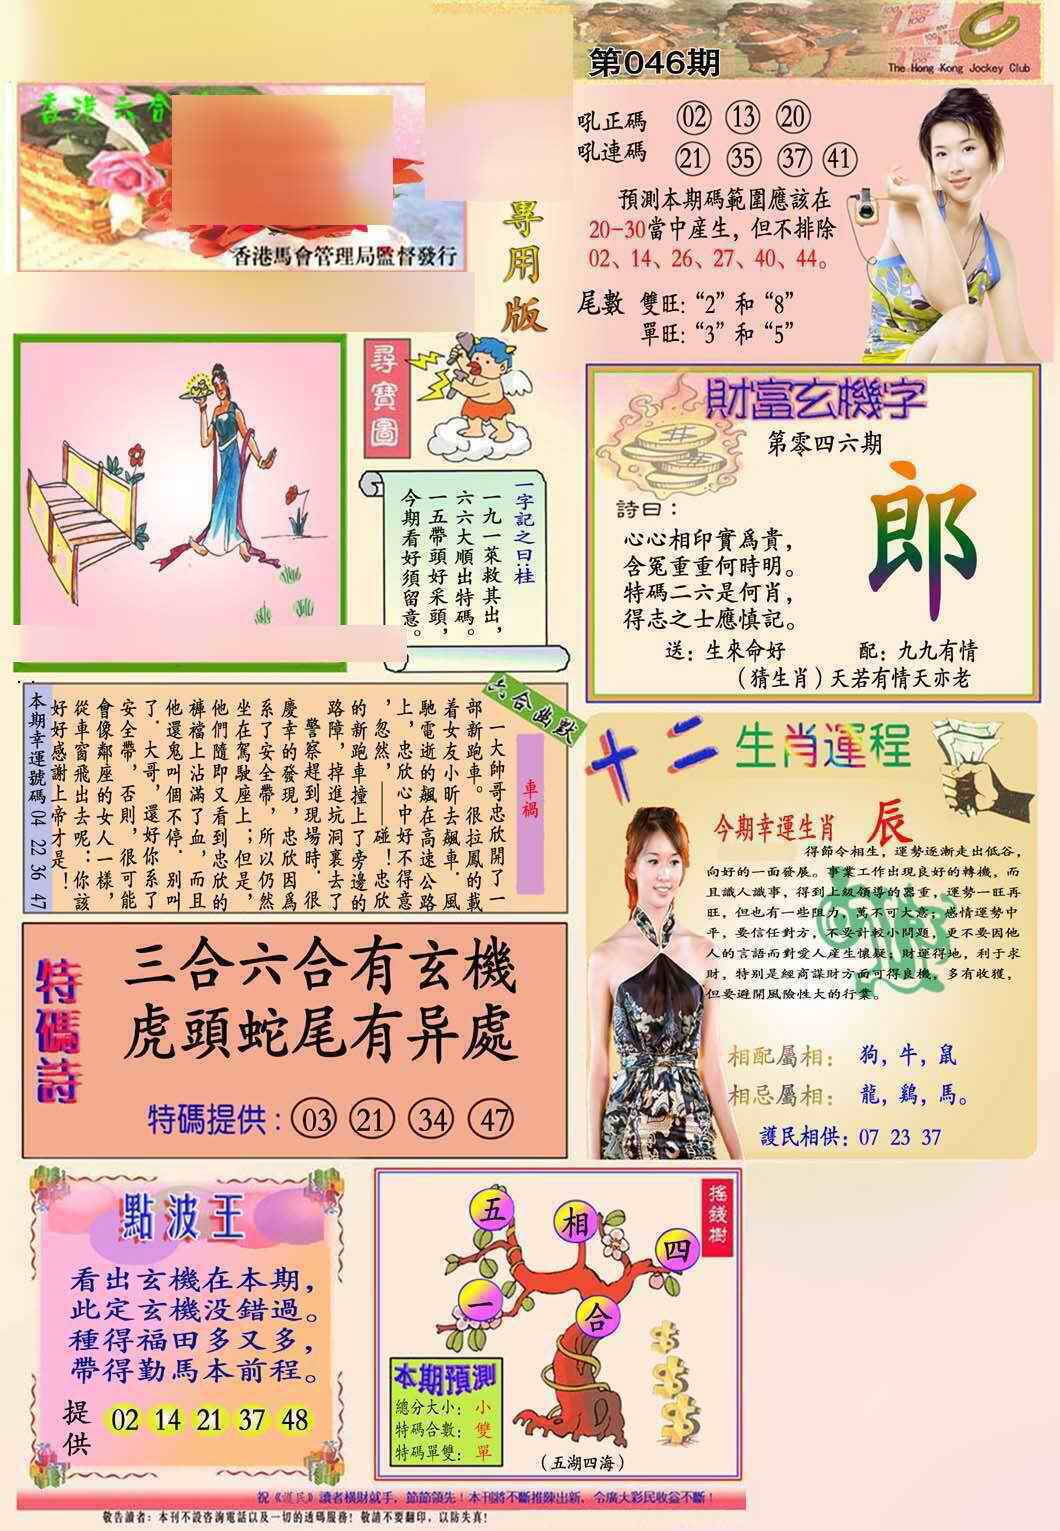 第046期
The Hong Kong Jockey Club
香港六合
香港馬會管理局監督發行
專用版
吼正碼 02 13 20
吼連碼 21 35 37 41
預測本期碼範圍應該在
20-30當中產生，但不排除
02、14、26、27、40、44。
尾數 雙旺:“2”和“8”
單旺:“3”和“5”
尋寶圖
一字記之曰:桂
一九一萊救其出，
六六大順出特碼。
一五帶頭好采頭，
今期看好須留意。
財富玄機字
第零四六期
郎
詩曰：
心心相印實爲貴，
含冤重重何時明。
特碼二六是何肖，
得志之士應慎記。
送：生來命好 配：九九有情
（猜生肖）天若有情天亦老
六合幽默
車禍
一大帥哥忠欣開了一
部新跑車。很拉風的載
着女友小昕去飆車．風
馳電逝的飆在高速公路
上，忠欣心中好不得意
，忽然，——碰！忠欣
的新跑車撞上了旁邊的
路障，掉進坑洞裏去了
警察趕到現場時．很
慶幸的發現，忠欣因爲
系了安全帶，所以仍然
坐在駕駛座上；但是，
他們隨即又看到忠欣的
褲襠上沾滿了血，而且
他還鬼叫個不停．別叫
了．大哥，還好你系了
安全帶，否則，很可能
會像鄰座的女人一樣，
從車窗飛出去呢：你該
好好感謝上帝才是！
本期幸運號碼 04 22 36 47
十二生肖運程
今期幸運生肖 辰
得節令相生，運勢逐漸走出低谷，
向好的一面發展。事業工作出現良好的轉機，而
且識人識事，得到上級領導的器重，運勢一旺再
旺，但也有一些阻力，萬不可大意；感情運勢中
平，要信任對方，不要計較小問題，更不要因他
人的言語而對愛人産生懷疑；財運得地，利于求
財，特别是經商謀財方面可得良機，多有收獲，
但要避開風險性大的行業。
相配屬相：狗，牛，鼠
相忌屬相：龍，鷄，馬。
護民相供：07 23 37
特碼詩
三合六合有玄機
虎頭蛇尾有异處
特碼提供：03 21 34 47
點波王
看出玄機在本期，
此定玄機没錯過。
種得福田多又多，
帶得勤馬本前程。
提供 02 14 21 37 48
搖錢樹
五 相 四
一 合
本期預測
總分大小：小
特碼合數：雙
特碼單雙：單
（五湖四海）
祝《護民》讀者横財就手，節節領先！本刊將不斷推陳出新、令廣大彩民收益不斷！
敬告讀者：本刊不設咨詢電話以及一切的透碼服務！敬請不要翻印，以防失真！